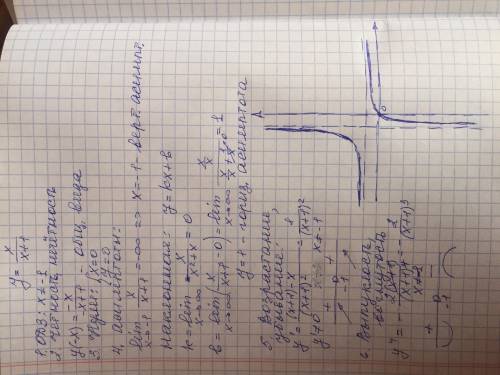 y = x/(x+1)
1. ОДЗ: x ≠ -1
2. Четность, нечётность
y(-x) = -x/(-x+1) - общ. вида
3. Нули: {x=0 y=0
4. Асимптоты:
lim x→-1 x/(x+1) = -∞ => x = -1 - верт. асимпт.
Наклонная: y = kx+b
k = lim x→∞ x/(x²+x) = 0
b = lim x→∞ (x/(x+1) - 0) = lim x→∞ (x/x)/(x/x + 1/x→0) = 1
y = 1 - гориз. асимптота
5. Возрастание, убывание:
y' = ((x+1)-x)/(x+1)² = 1/(x+1)²
y' > 0 x ≠ -1
+ +
-1
6. Выпуклость, вогнутость
y'' = - 2(x+1)/(x+1)⁴ = - 2/(x+1)³
+ -
-1
0